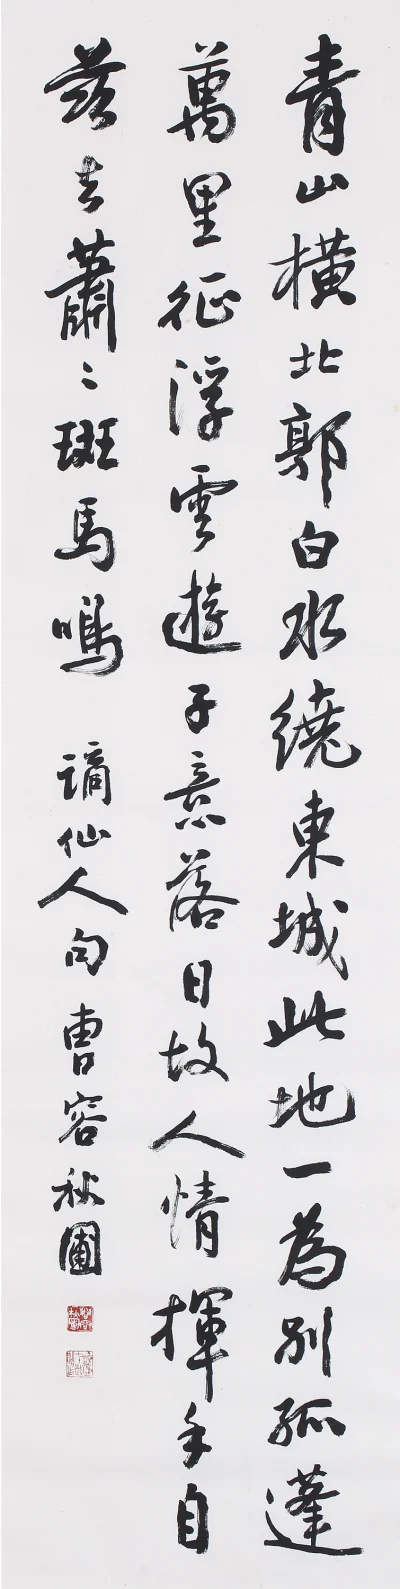 青山橫北郭白水繞東城此地一為別孤蓬
萬里征浮雲遊子意落日故人情揮手自
茲去蕭〻班馬鳴 謫仙人句 曹容秋圃